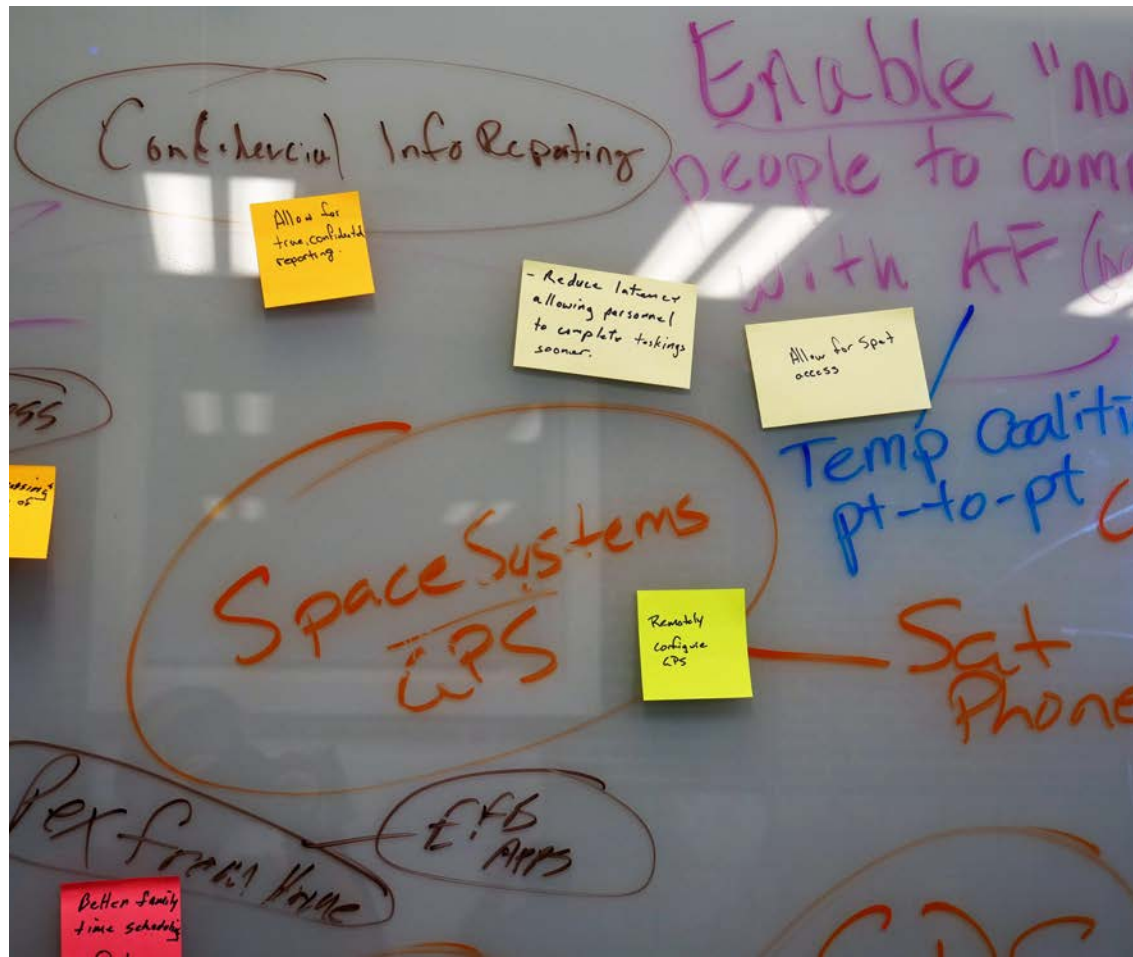 Enable "no
people to comp
with AF
Confidencial Info Reporting
Allow for
true, confidential
reporting.
- Reduce latency
allowing personnel
to complete taskings
soonner.
Allow for Spot
access
Temp Coaliti
pt-to-pt
ess
of
Space Systems
GPS
Remotely
configure
GPS
Sat
Phone
Pex from Home
EFB
APPS
Better family
time scheduling